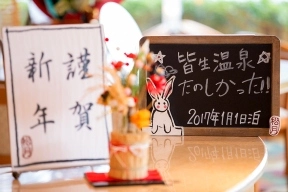 謹賀
新年
皆生温泉
たのしかった!!
2017年1月1日泊